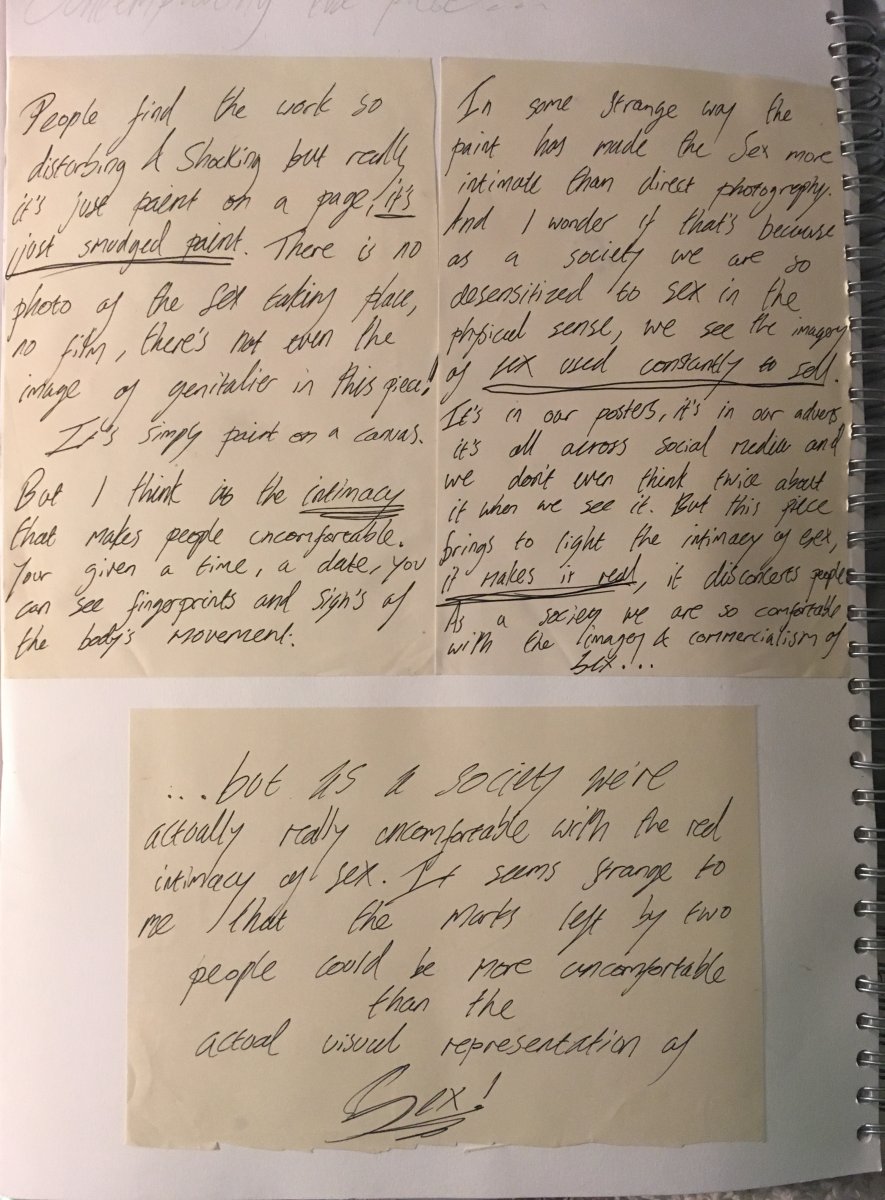 Contemplating the piece...
People find the work so
disturbing & Shocking but really
it's just paint on a page, it's
just smudged paint. There is no
photo of the sex taking place,
no film, there's not even the
image of genitalier in this piece!
It's simply paint on a canvas.
But I think is the intimacy
that makes people uncomfortable.
Your given a time, a date, you
can see fingerprints and sign's of
the body's movement.
In some strange way the
paint has made the Sex more
intimate than direct photography.
And I wonder if that's because
as a society we are so
desensitized to sex in the
physical sense, we see the imagery
of sex used constantly to sell.
It's in our posters, it's in our adverts
it's all across social media and
we don't even think twice about
it when we see it. But this piece
brings to light the intimacy of sex,
it makes it real, it disconcerts people
As a society we are so comfortable
with the imagery & commercialism of
Sex...
...but as a society we're
actually really uncomfortable with the real
intimacy of sex. It seems strange to
me that the marks left by two
people could be more uncomfortable
than the
actual visual representation of
Sex!